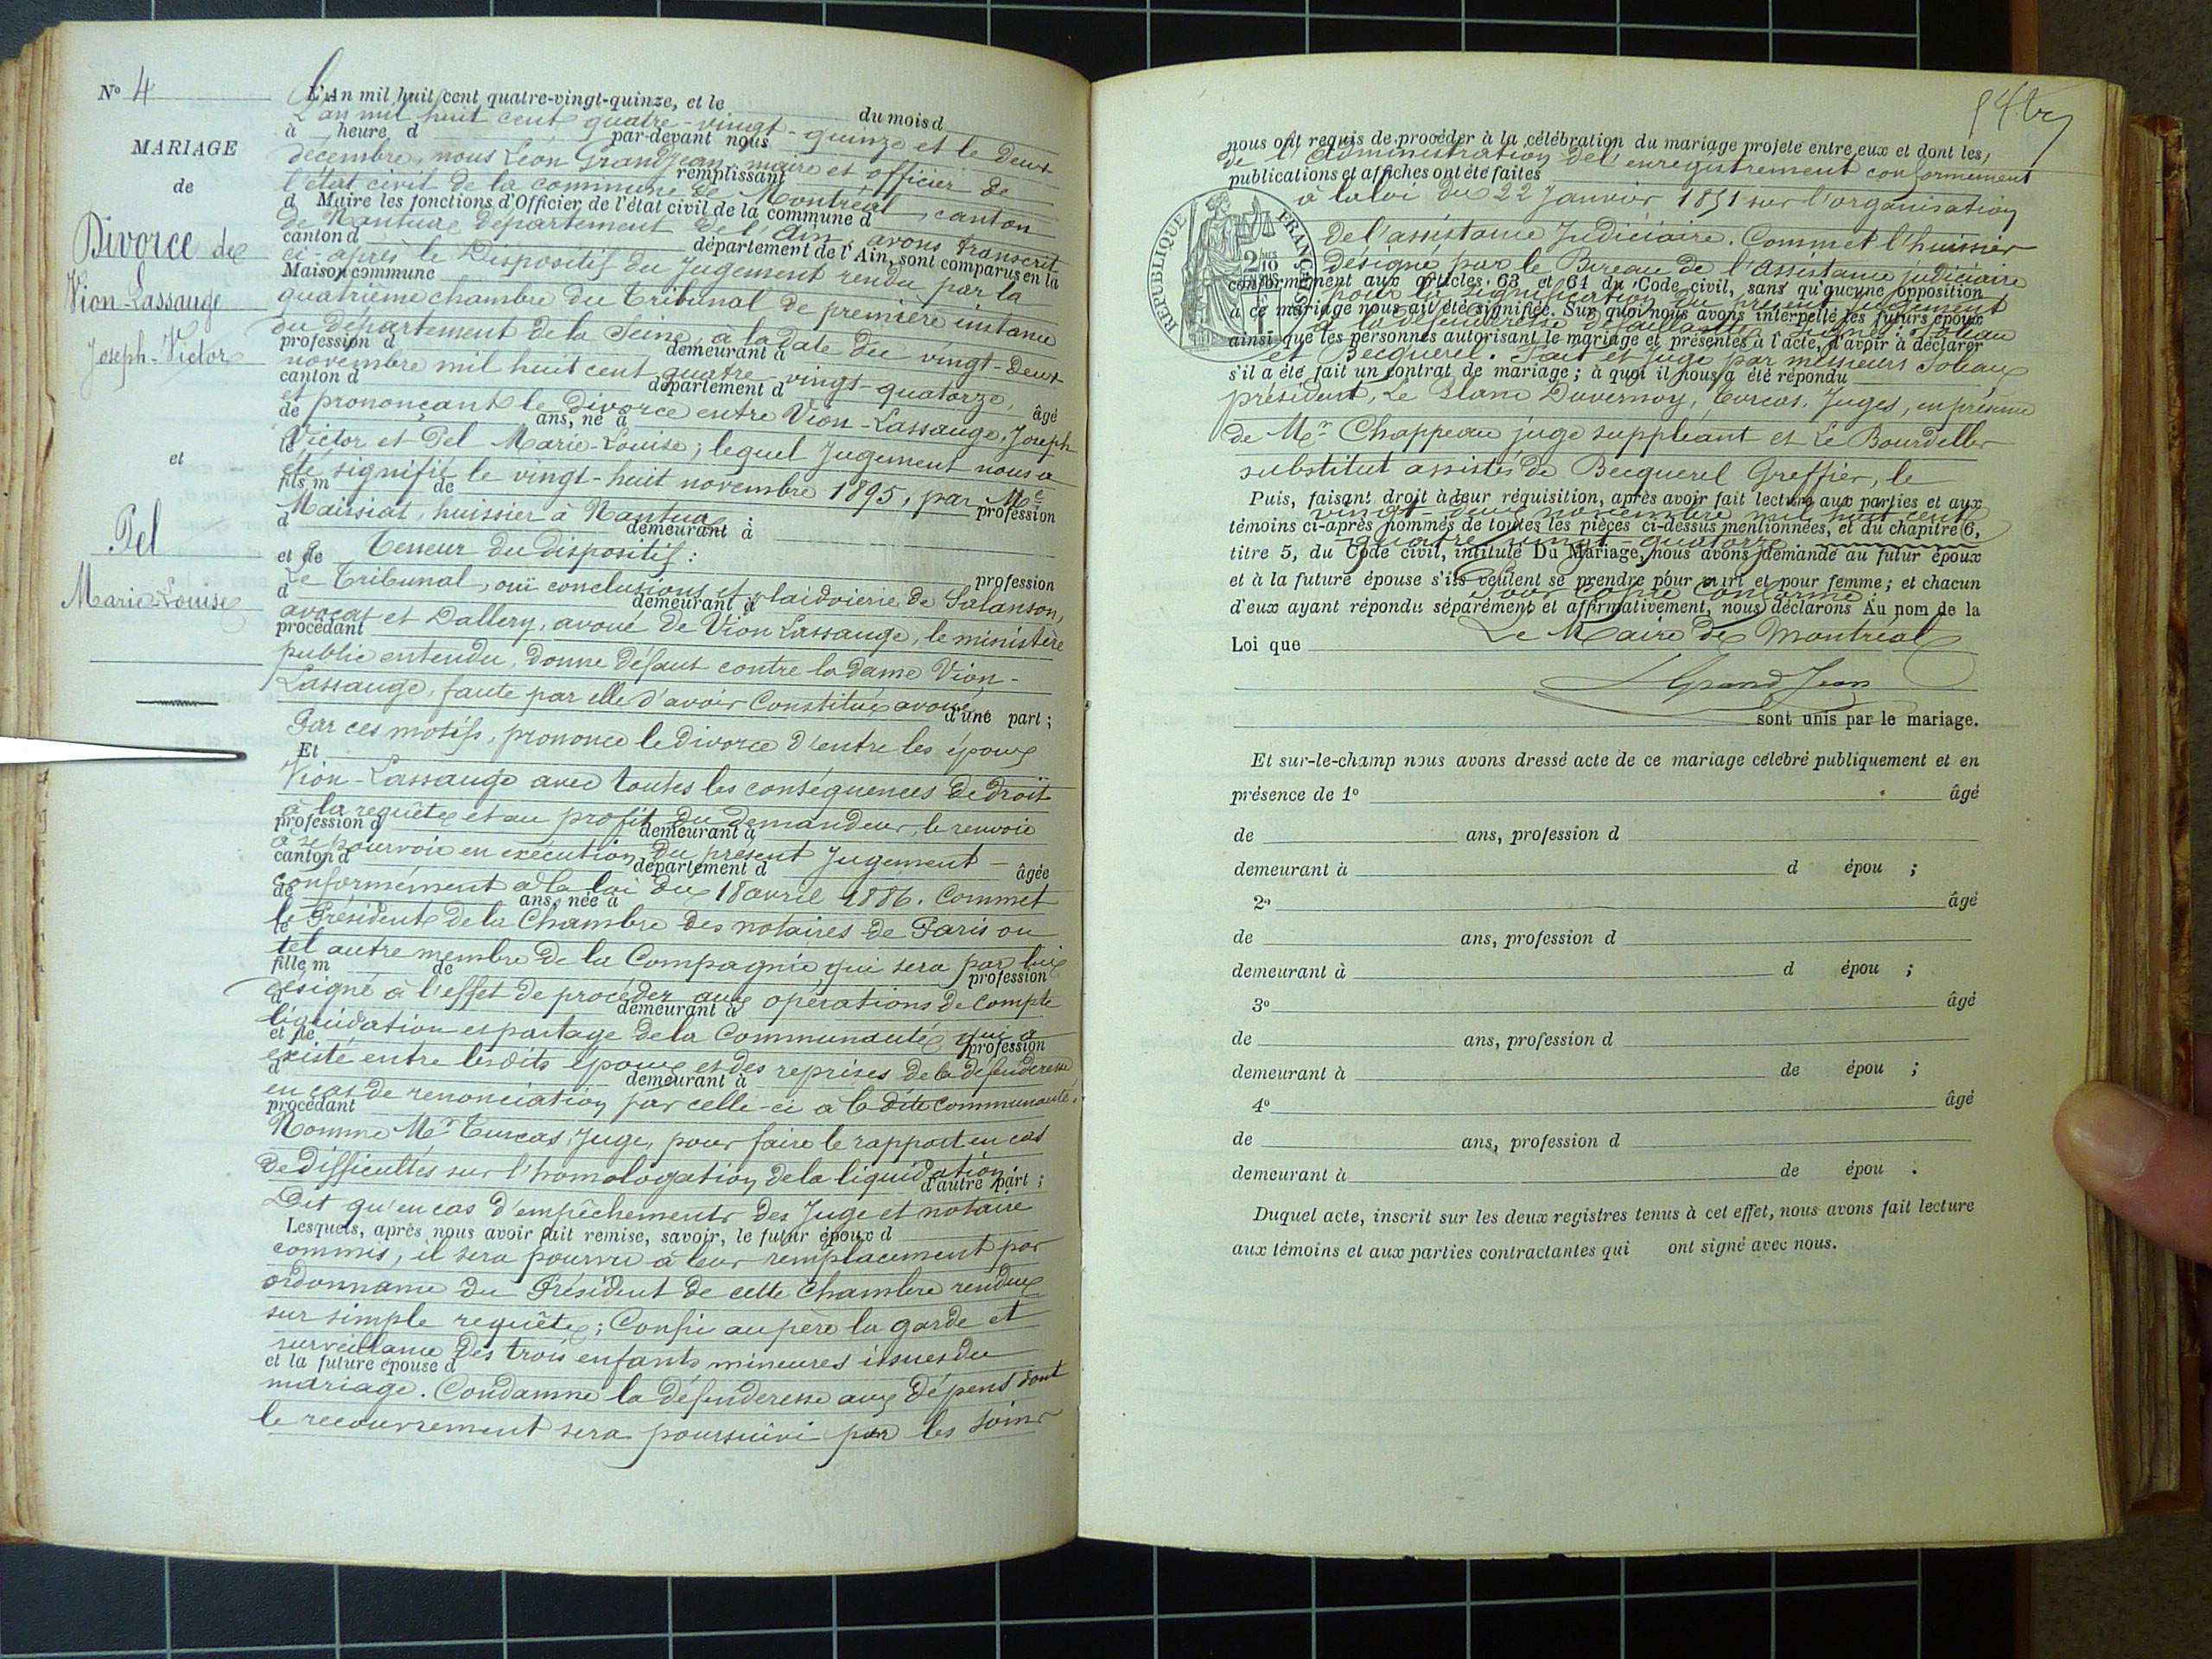 N° 4
MARIAGE
de
Divorce de
Vion-Lassauge
Joseph-Victor
et
Pel
Marie-Louise
L'An mil huit cent quatre-vingt-quinze, et le du mois d
L'an mil huit cent quatre-vingt-quinze et le deux
à heure d par-devant nous
décembre, nous Léon Grandjean, maire et officier de
remplissant
l'état civil de la commune de Montréal, canton
d Maire les fonctions d'Officier de l'état civil de la commune d
de Nantua département de l'Ain, avons transcrit
canton d département de l'Ain, sont comparus en la
ci-après le Dispositif du Jugement rendu par la
Maison commune
quatrième chambre du Tribunal de première instance
du département de la Seine, à la date du vingt-deux
profession d demeurant à
novembre mil huit cent quatre-vingt-quatorze,
canton d département d âgé
et prononçant le divorce entre Vion-Lassauge, Joseph
de ans, né à
Victor et Pel Marie-Louise; lequel Jugement nous a
le
été signifié le vingt-huit novembre 1895, par Me
fils m de profession
Maissiat, huissier à Nantua.
d demeurant à
Teneur du dispositif:
et de profession
Le Tribunal, ouï conclusions et plaidoierie de Salanson,
d demeurant à
avocat et Dallery, avoué de Vion Lassauge, le ministère
procédant
public entendu, donne défaut contre la dame Vion-
Lassauge, faute par elle d'avoir Constitué avoué,
d'une part;
Par ces motifs, prononce le divorce d'entre les époux
Et
Vion-Lassauge avec toutes les conséquences de droit
à la requête et au profit du demandeur, le renvoie
profession d demeurant à
à se pourvoir en exécution du présent Jugement
canton d département d âgée
conformément à la loi du 18 avril 1886. Commet
de ans, née à
le Président de la Chambre des notaires de Paris ou
le
tel autre membre de la Compagnie qui sera par lui
fille m de profession
désigné à l'effet de procéder aux opérations de compte
d demeurant à
liquidation et partage de la Communauté qui a
et de profession
existé entre lesdits époux et des reprises de la défenderesse
d demeurant à
en cas de renonciation par celle-ci à la dite communauté.
procédant
Nomme Mr Turcas, Juge, pour faire le rapport en cas
de difficultés sur l'homologation de la liquidation.
d'autre part;
Dit qu'en cas d'empêchements des Juge et notaire
Lesquels, après nous avoir fait remise, savoir, le futur époux d
commis, il sera pourvu à leur remplacement par
ordonnance du Président de cette Chambre rendue
sur simple requête; Confie au père la garde et
surveillance des trois enfants mineures issues du
et la future épouse d
mariage. Condamne la défenderesse aux dépens dont
le recouvrement sera poursuivi par les soins
nous ont requis de procéder à la célébration du mariage projeté entre eux et dont les
de l'Administration de l'enregistrement conformément
publications et affiches ont été faites
à la loi du 22 Janvier 1851 sur l'organisation
RÉPUBLIQUE FRANÇAISE
de l'assistance Judiciaire. Commet l'huissier
désigné par le Bureau de l'Assistance judiciaire
conformément aux articles 63 et 64 du Code civil, sans qu'aucune opposition
pour la signification du présent jugement
à ce mariage nous ait été signifiée. Sur quoi nous avons interpellé les futurs époux
à la défenderesse défaillante
ainsi que les personnes autorisant le mariage et présentes à l'acte, d'avoir à déclarer
et Becquerel. Fait et Jugé par messieurs
s'il a été fait un contrat de mariage; à quoi il nous a été répondu
président, Le Blanc Duvernoy, Turcas, Juges, en présence
de Mr Chappeau juge suppléant et Le Bourdellès
substitut assistés de Becquerel Greffier, le
Puis, faisant droit à leur réquisition, après avoir fait lecture aux parties et aux
vingt-deux novembre mil huit cent
témoins ci-après nommés de toutes les pièces ci-dessus mentionnées, et du chapitre 6,
quatre-vingt-quatorze
titre 5, du Code civil, intitulé Du Mariage, nous avons demandé au futur époux
et à la future épouse s'ils veulent se prendre pour mari et pour femme; et chacun
Pour Copie Conforme:
d'eux ayant répondu séparément et affirmativement, nous déclarons Au nom de la
Le Maire de Montréal
Loi que
LGrandJean
sont unis par le mariage.
Et sur-le-champ nous avons dressé acte de ce mariage célébré publiquement et en
présence de 1° âgé
de ans, profession d
demeurant à d épou ;
2° âgé
de ans, profession d
demeurant à d épou ;
3° âgé
de ans, profession d
demeurant à de épou ;
4° âgé
de ans, profession d
demeurant à de épou .
Duquel acte, inscrit sur les deux registres tenus à cet effet, nous avons fait lecture
aux témoins et aux parties contractantes qui ont signé avec nous.